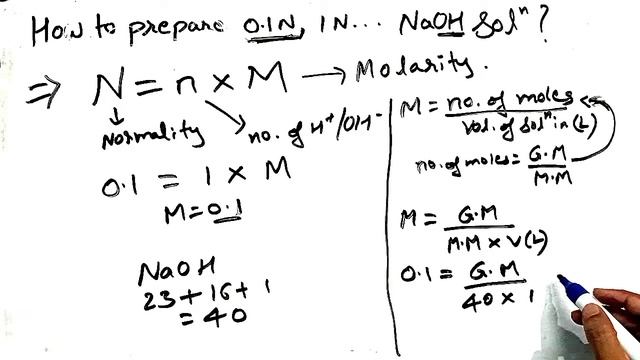 How to prepare 0.1N, 1N... NaOH Solⁿ?
⇒ N = n × M → Molarity.
↓
Normality
no. of H⁺/OH⁻
0.1 = 1 × M
M = 0.1
NaOH
23 + 16 + 1
= 40
M = no. of moles / Vol. of Solⁿ in (L)
no. of moles = G.M / M.M
M = G.M / M.M × V(L)
0.1 = G.M / 40 × 1